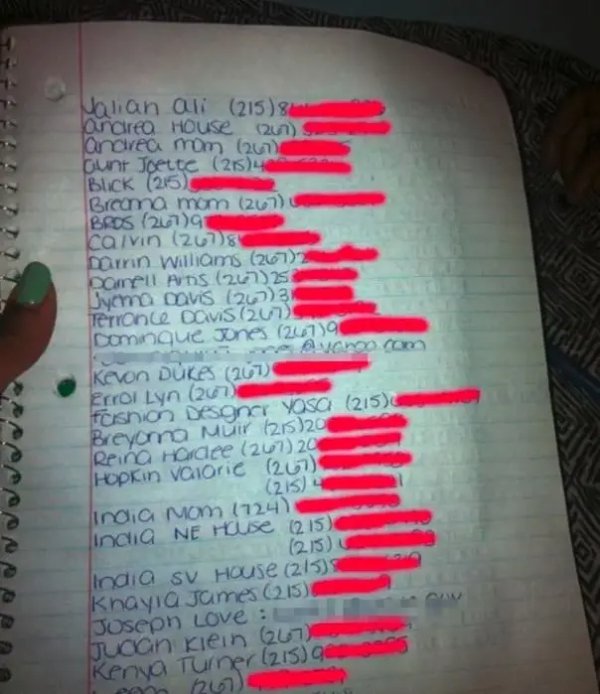 Jalian Ali (215) 8
Andrea House (267)
Andrea mom (267)
Aunt Joette (215) 4
Blick (215)
Breanna mom (267)
BROS (267) 9
Calvin (267) 8
Darrin Williams (267) 2
Darnell Artis (267) 25
Jyenna Davis (267) 3
Terrance Davis (267)
Dominique Jones (267) 9
@yahoo.com
Kevon Dukes (267)
Errol Lyn (267)
Fashion Designer Yasa (215)
Breyanna Muir (215) 20
Reina Hardee (267) 20
Hopkin Valorie (267)
(215)
India Mom (724)
India NE House (215)
(215)
India SV House (215)
Khayla James (215)
Joseph Love :
Judan Klein (267)
Kenya Turner (215) 9
(267)